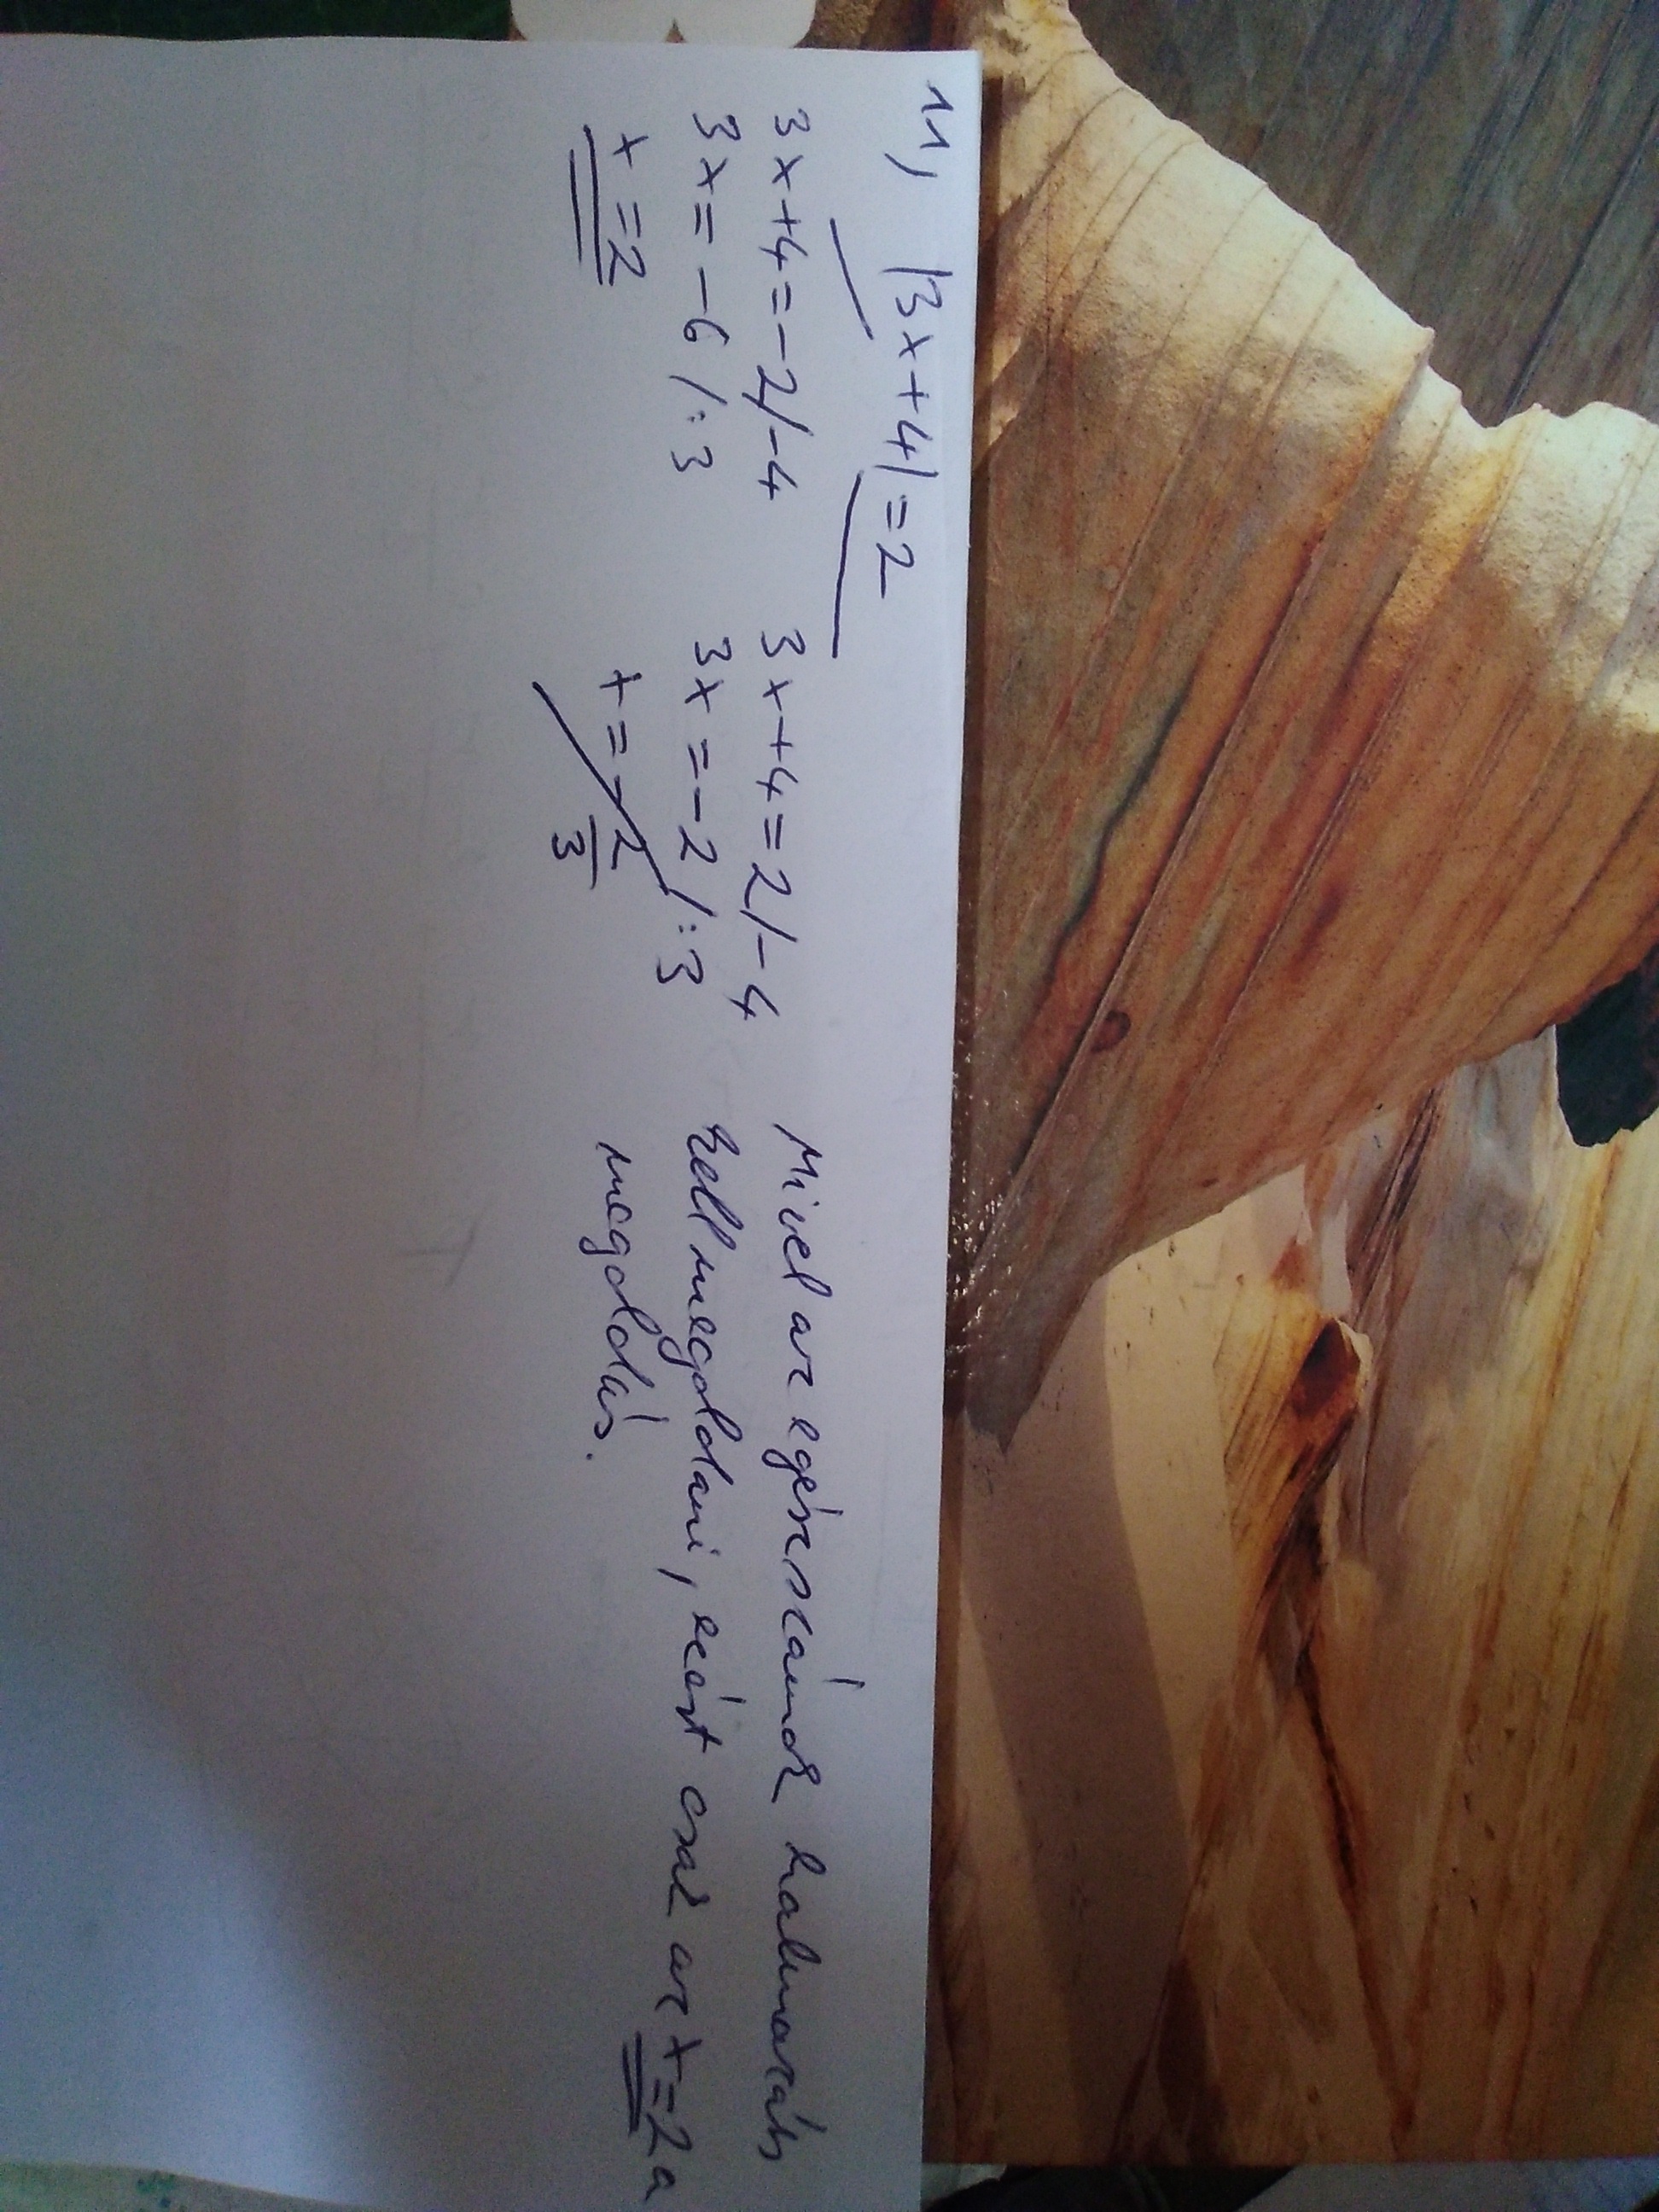 11, |3x+4|=2
3x+4=-2/-4 3x+4=2/-4 Mivel az egészszámok halmazán
3x=-6/:3 3x=-2/:3 kell megoldani, ezért csak az x=2 a
x=2 x=-2/3 megoldás.